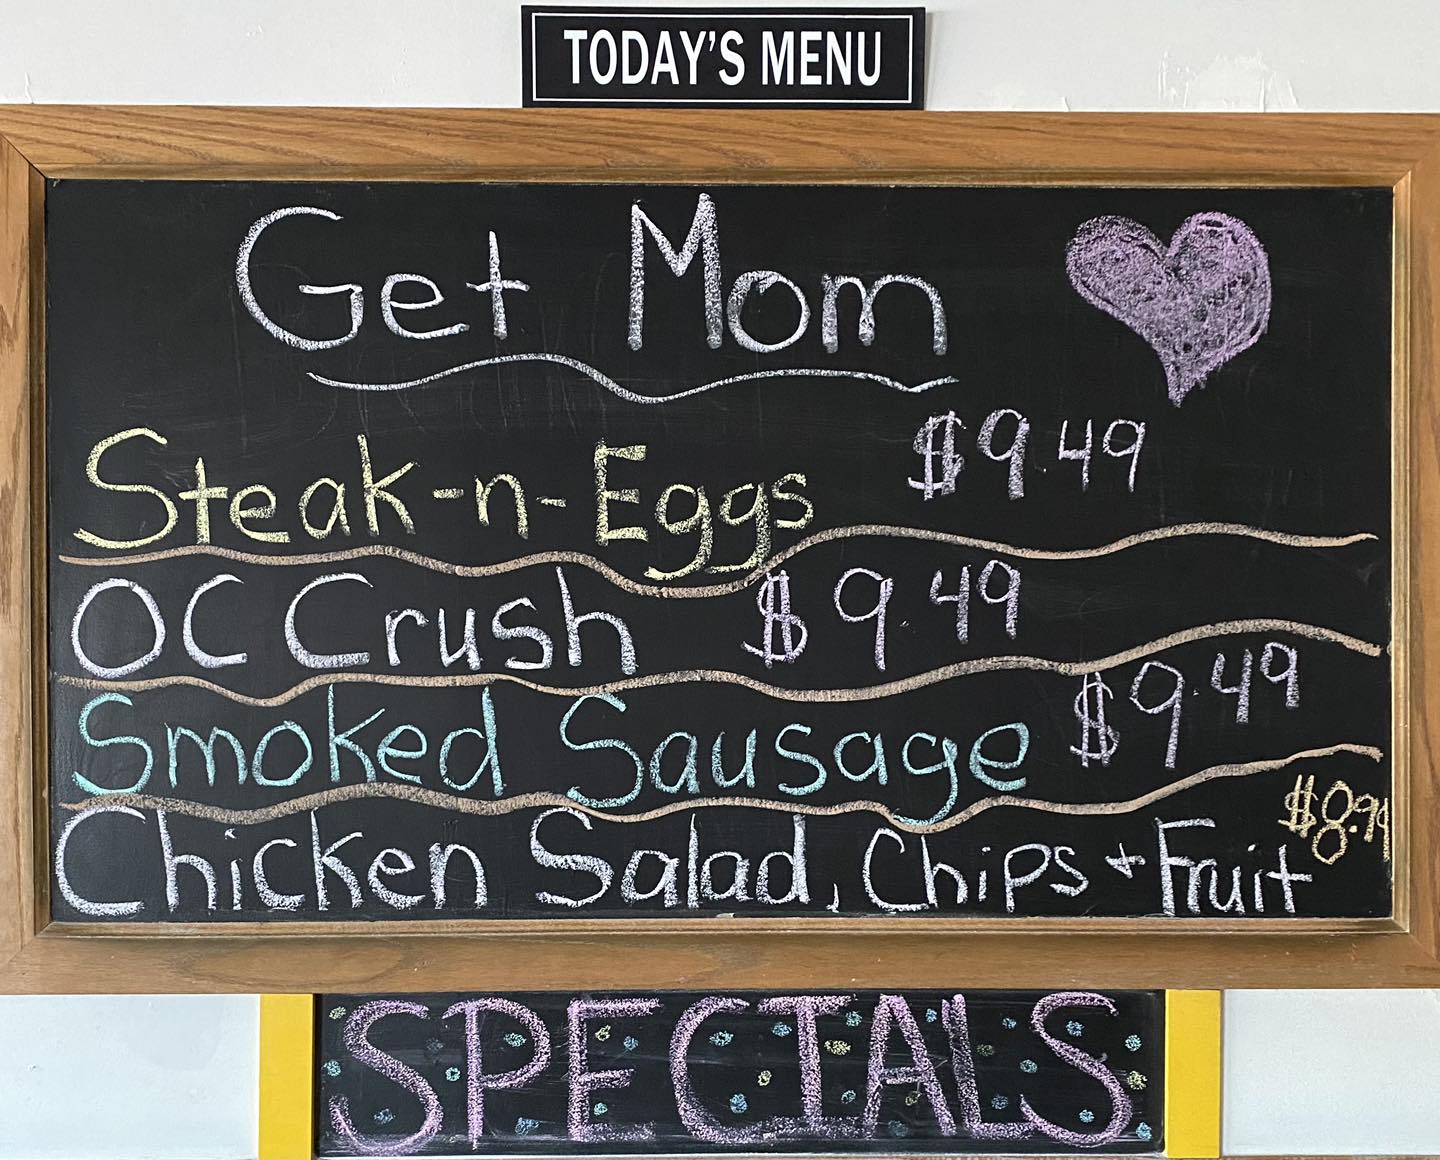 TODAY'S MENU
Get Mom
Steak-n-Eggs $9.49
OC Crush $9.49
Smoked Sausage $9.49
Chicken Salad, Chips + Fruit $8.99
SPECIALS